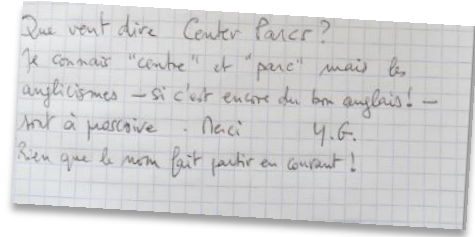 Que veut dire Center Parcs?
Je connais "centre" et "parc" mais les
anglicismes - si c'est encore du bon anglais! -
sont à proscrire. Merci Y.G.
Rien que le nom fait partir en courant!